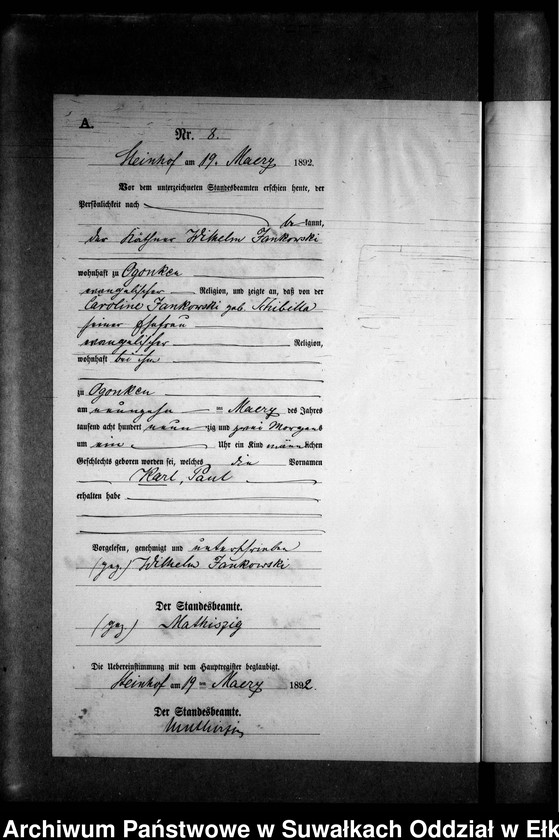 A.
Nr. 8.
Steinhof am 19. Maerz 1892.
Vor dem unterzeichneten Standesbeamten erschien heute, der
Persönlichkeit nach
be kannt,
der Käthner Wilhelm Jankowski
wohnhaft zu Ogonken
evangelischer Religion, und zeigte an, daß von der
Caroline Jankowski geb. Schibilla
seiner Ehefrau
evangelischer Religion,
wohnhaft bei ihm
zu Ogonken
am neunzehn ten Maerz des Jahres
tausend acht hundert neun zig und zwei Morgens
um ein Uhr ein Kind männlichen
Geschlechts geboren worden sei, welches die Vornamen
Karl, Paul
erhalten habe
Vorgelesen, genehmigt und unterschrieben
(gez.) Wilhelm Jankowski
Der Standesbeamte.
(gez) Mathiszig
Die Uebereinstimmung mit dem Hauptregister beglaubigt.
Steinhof am 19 ten Maerz 1892.
Der Standesbeamte.
Archiwum Państwowe w Suwałkach Oddział w Ełk